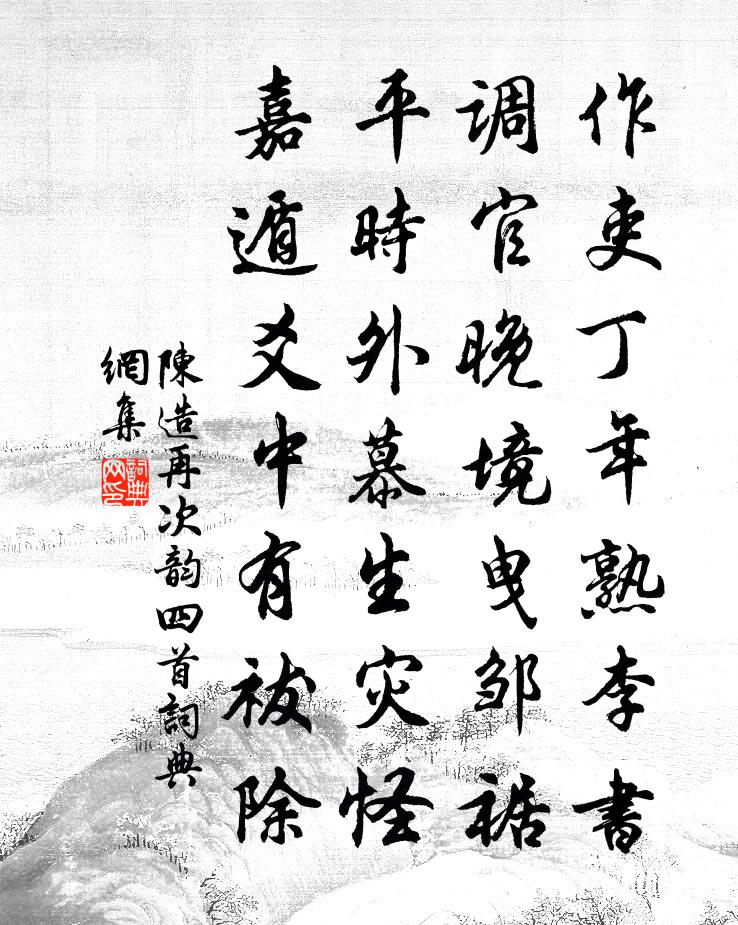 作吏丁年熟李書
调官晚境曳邹裾
平時外慕生灾怪
嘉遁爻中有祓除
陳造再次韵四首詞典
網集
詞典
网印